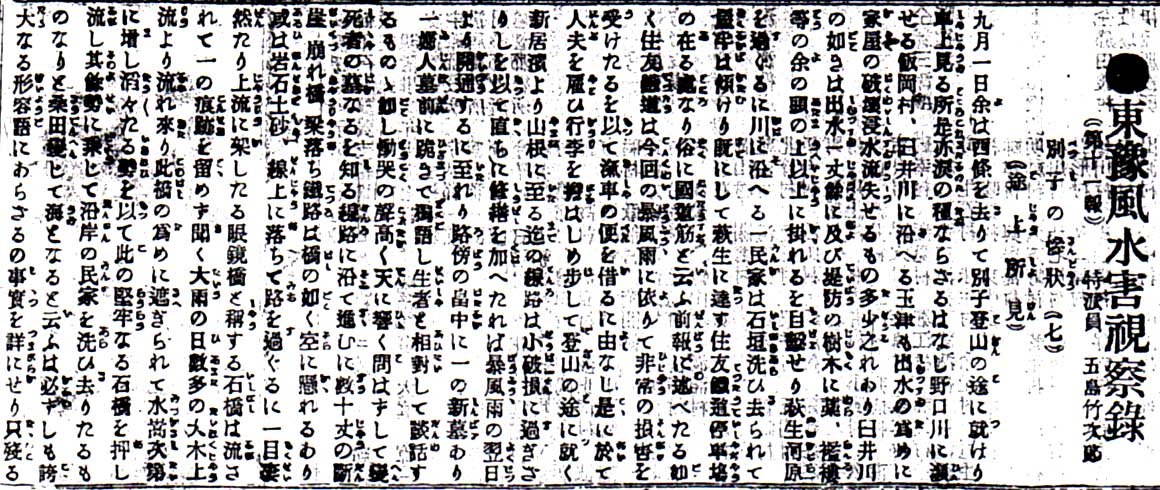 ●東豫風水害視察錄
(第十一報) 特派員 五島竹次郎
別子の慘狀(七)
(途上所見)
九月一日余は西條を去りて別子登山の途に就けり
車上見る所是亦涙の種ならさるはなし野口川に瀕
せる飯岡村、臼井川に沿へる玉津も出水の爲めに
家屋の破壞浸水流失せるもの多少之れあり臼井川
の如きは出水一丈餘に及び堤防の樹木に藁、襤褸
等の余の頭の上以上に掛れるを目擊せり萩生河原
を過ぐるに川に沿へる一民家は石垣洗ひ去られて
屋牢は傾けり既にして萩生に達す住友鐵道停車塲
の在る處なり俗に國道筋と云ふ前報に述べたる如
く住友鐵道は今回の暴風雨に依りて非常の損害を
受けたるを以て滊車の便を借るに由なし是に於て
人夫を雇ひ行李を擔はしめ步して登山の途に就く
新居濱より山根に至る迄の線路は小破損に過ぎさ
りしを以て直ちに修繕を加へたれば暴風雨の翌日
より開通するに至れり路傍の畠中に一の新墓あり
一婦人墓前に跪きて獨語し生者と相對して談話す
るものゝ如し慟哭の聲高く天に響く問はずして變
死者の墓なるを知る線路に沿て進むに數十丈の斷
崖 崩れ橋 梁落ち鐵路は橋の如く空に懸れるあり
或は岩石土砂 線上に落ちて路を過ぐるに一目凄
然たり上流に架したる眼鏡橋と稱する石橋は流さ
れて一の痕跡を留めず聞く大雨の日數多の大木上
流より流れ來り此橋の爲めに遮ぎられて水尚次第
に增し滔々たる勢を以て此の堅牢なる石橋を押し
流し其餘勢に乘して沿岸の民家を洗ひ去りたるも
のなりと桑田變じて海となると云ふは必ずしも誇
大なる形容語にあらさるの事實を詳にせり只殘る